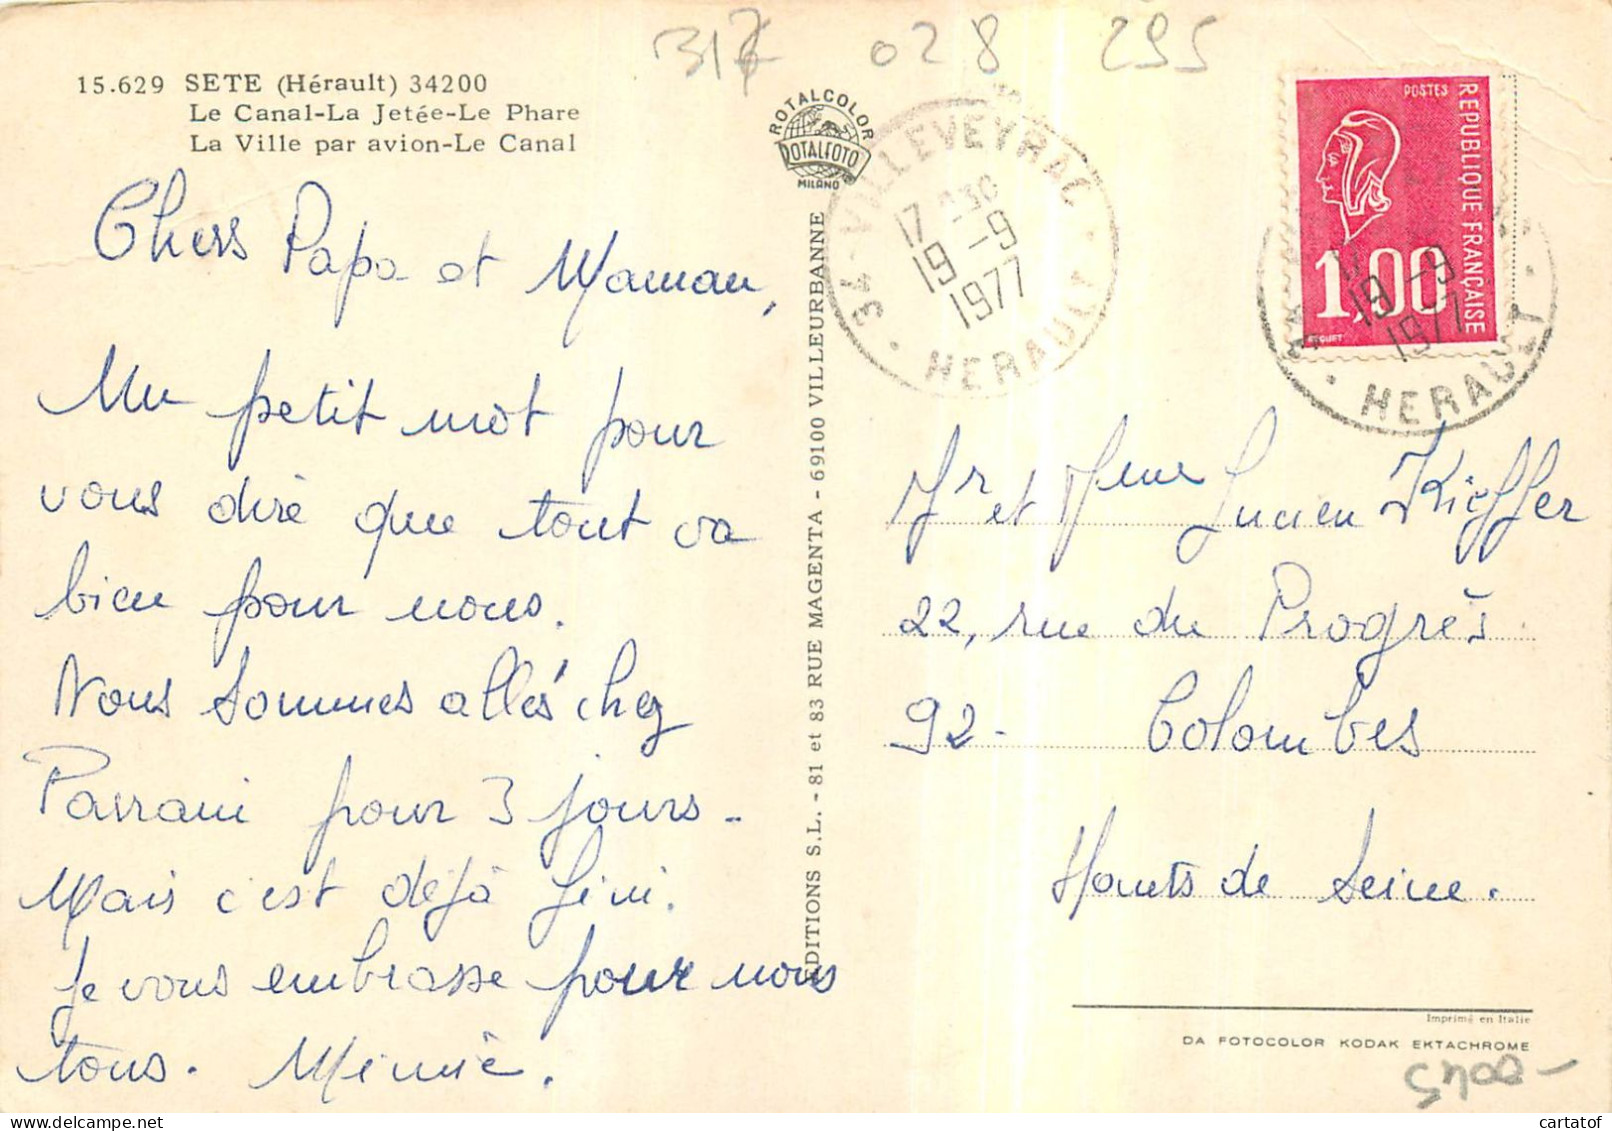 317 028 295
15.629 SETE (Hérault) 34200
Le Canal-La Jetée-Le Phare
La Ville par avion-Le Canal
ROTALCOLOR
ROTALFOTO
MILANO
Chers Papa et Maman,
Un petit mot pour
vous dire que tout va
bien pour nous.
Nous sommes allés chez
Parrain pour 3 jours.
Mais c'est déjà fini.
Je vous embrasse pour nous
tous. Mimie.
EDITIONS S.L. - 81 et 83 RUE MAGENTA - 69100 VILLEURBANNE
34 - VILLEVEYRAC
17 30
19 - 9
1977
HERAULT
POSTES
REPUBLIQUE FRANÇAISE
1,00
BEQUET
19 - 9
1977
HERAULT
Mr et Mme Lucien Kieffer
22, rue du Progrès
92 - Colombes
Hauts de Seine.
Imprimé en Italie
DA FOTOCOLOR KODAK EKTACHROME
cartatof